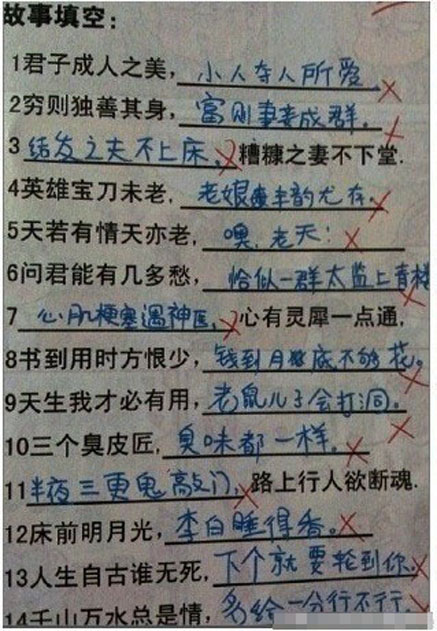 故事填空：
1君子成人之美，小人夺人所爱
2穷则独善其身，富则妻妾成群。
3结发之夫不上床，糟糠之妻不下堂.
4英雄宝刀未老，老娘丰韵尤存。
5天若有情天亦老，噢，老天！
6问君能有几多愁，恰似一群太监上青楼
7心肌梗塞遇神医，心有灵犀一点通，
8书到用时方恨少，钱到月底不够花。
9天生我才必有用，老鼠儿子会打洞。
10三个臭皮匠，臭味都一样。
11半夜三更鬼敲门，路上行人欲断魂.
12床前明月光，李白睡得香。
13人生自古谁无死，下个就要轮到你。
14千山万水总是情，多给一分行不行。